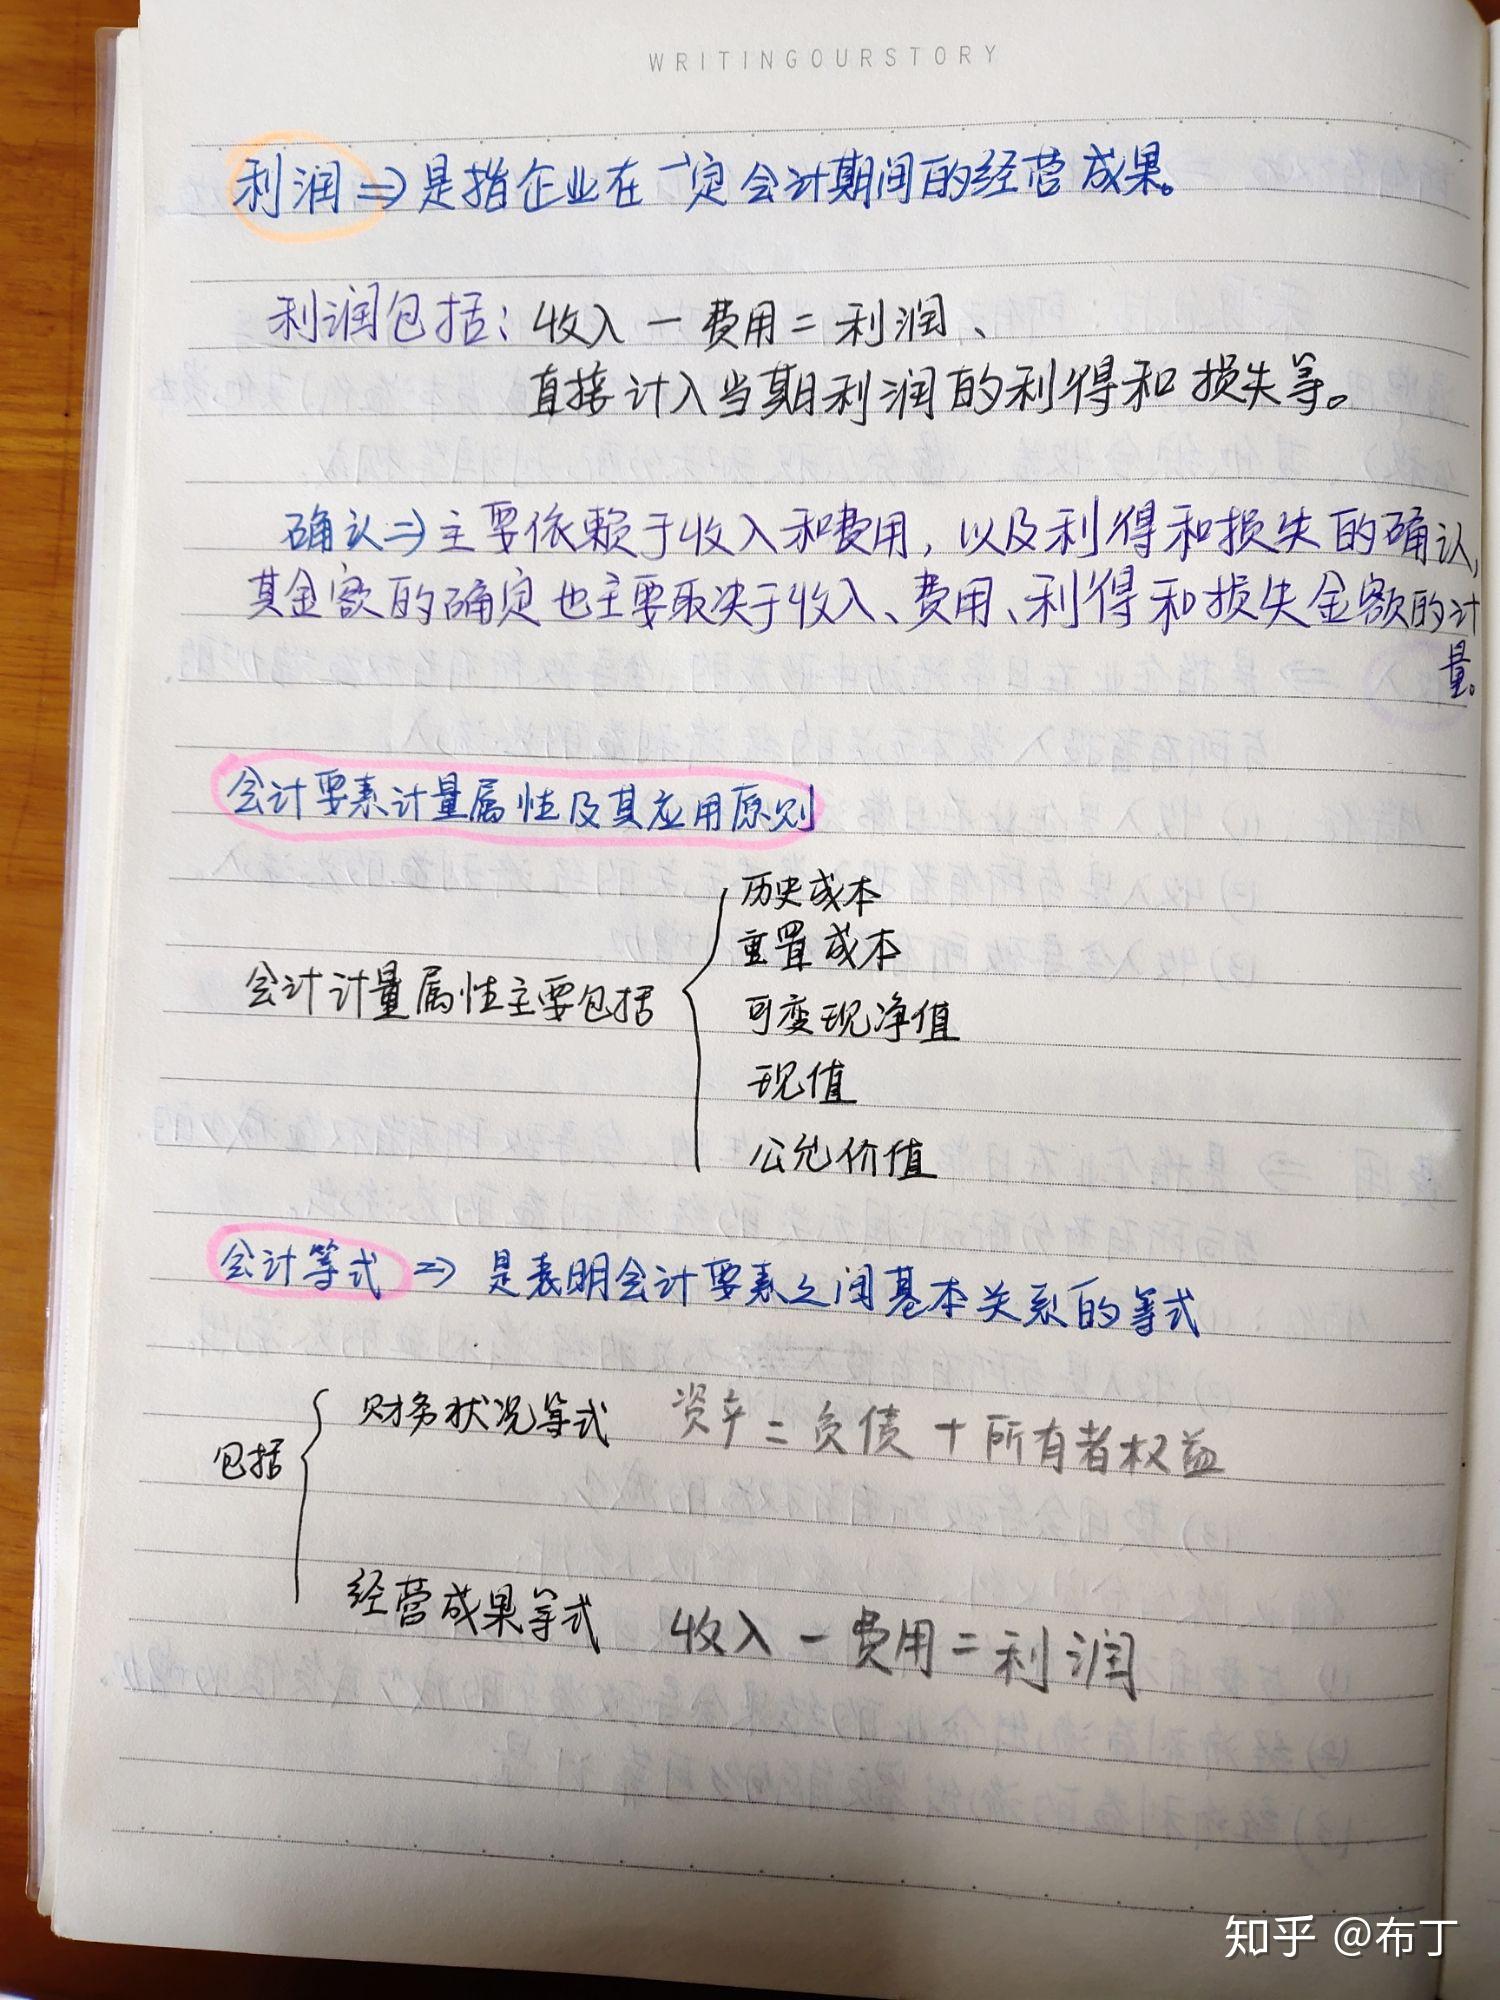 WRITINGOURSTORY
利润⇒是指企业在一定会计期间的经营成果。
利润包括：收入－费用＝利润、
直接计入当期利润的利得和损失等。
确认⇒主要依赖于收入和费用，以及利得和损失的确认，
其金额的确定也主要取决于收入、费用、利得和损失金额的计
量。
会计要素计量属性及其应用原则
历史成本
重置成本
会计计量属性主要包括
可变现净值
现值
公允价值
会计等式⇒是表明会计要素之间基本关系的等式
财务状况等式 资产＝负债＋所有者权益
包括
经营成果等式 收入－费用＝利润
知乎 @布丁